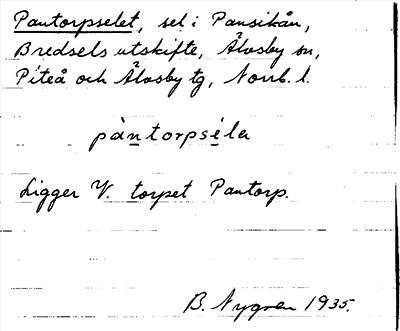 Pantorpselet, sel i Pansikån,
Bredsels utskifte, Älvsby sn,
Piteå och Älvsby tg, Norrb. l.
pàntorpséla
Ligger V. torpet Pantorp.
B. Nygren 1935.